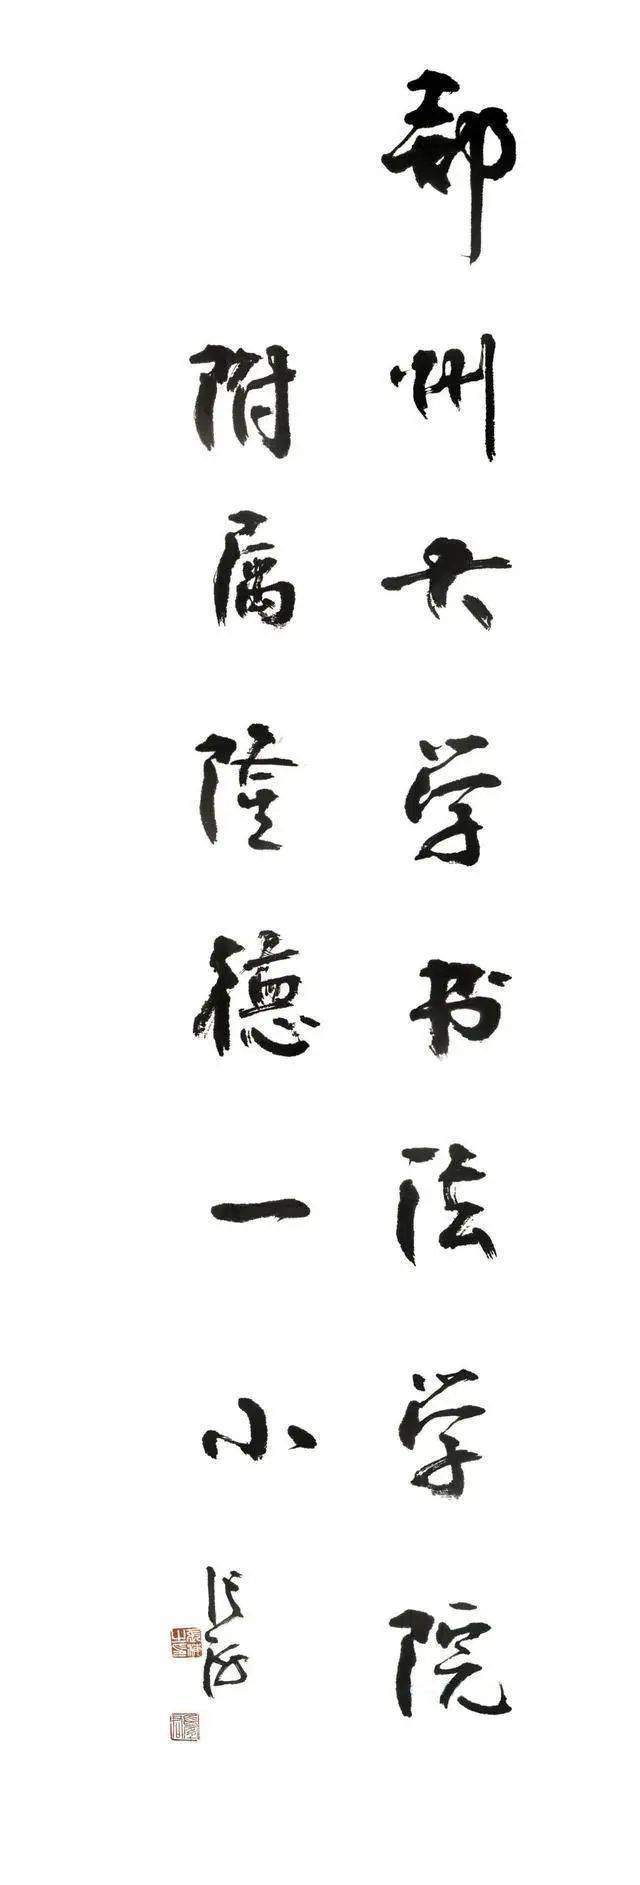 郑州大学书法学院
附属隆德一小
张海